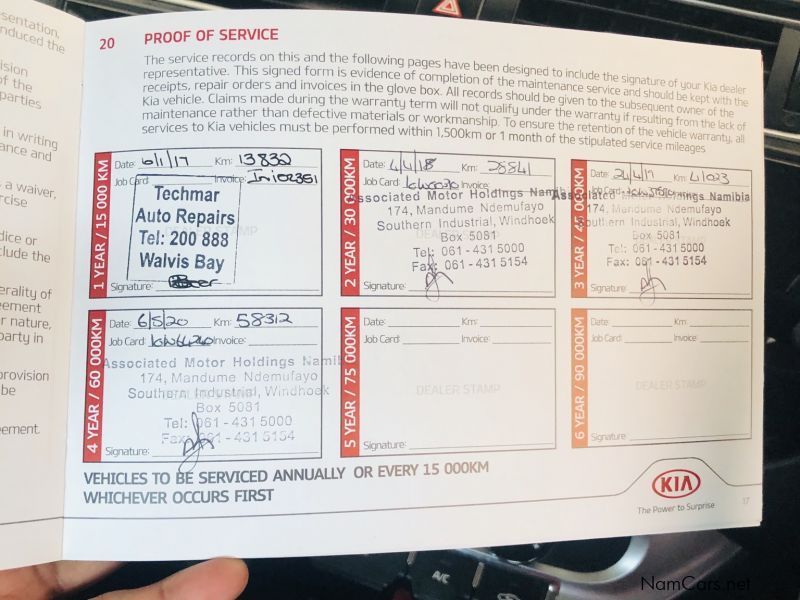 sentation,
nduced the
ision
of the
parties
in writing
ance and
a waiver,
rcise
dice or
clude the
erality of
eement
r nature,
party in
provision
be
eement
20 PROOF OF SERVICE
The service records on this and the following pages have been designed to include the signature of your Kia dealer
representative. This signed form is evidence of completion of the maintenance service and should be kept with the
receipts, repair orders and invoices in the glove box. All records should be given to the subsequent owner of the
Kia vehicle. Claims made during the warranty term will not qualify under the warranty if resulting from the lack of
maintenance rather than defective materials or workmanship. To ensure the retention of the vehicle warranty, all
services to Kia vehicles must be performed within 1,500km or 1 month of the stipulated service mileages
1 YEAR / 15 000 KM
Date: 6/1/17 Km: 13832
Job Card: Invoice:
Techmar
Auto Repairs
Tel: 200 888
Walvis Bay
Signature:
2 YEAR / 30 000 KM
Date: 4/4/18 Km: 28841
Job Card: Invoice:
Associated Motor Holdings Namib
174, Mandume Ndemufayo
Southern Industrial, Windhoek
Box 5081
Tel: 061 - 431 5000
Fax: 061 - 431 5154
Signature:
3 YEAR / 45 000KM
Date: 24/4/19 Km: 41023
Job Card:
Associated Motor Holdings Namibia
174, Mandume Ndemufayo
Southern Industrial, Windhoek
Box 5081
Tel: 061 - 431 5000
Fax: 061 - 431 5154
Signature:
4 YEAR / 60 000KM
Date: 6/5/20 Km: 58312
Job Card: Invoice:
Associated Motor Holdings Namib
174, Mandume Ndemufayo
Southern Industrial, Windhoek
Box 5081
Tel: 061 - 431 5000
Fax: 061 - 431 5154
Signature:
5 YEAR / 75 000KM
Date: Km:
Job Card: Invoice:
DEALER STAMP
Signature:
6 YEAR / 90 000KM
Date: Km:
Job Card: Invoice:
DEALER STAMP
Signature:
VEHICLES TO BE SERVICED ANNUALLY OR EVERY 15 000KM
WHICHEVER OCCURS FIRST
KIA
The Power to Surprise
17
A/C
NamCars.net